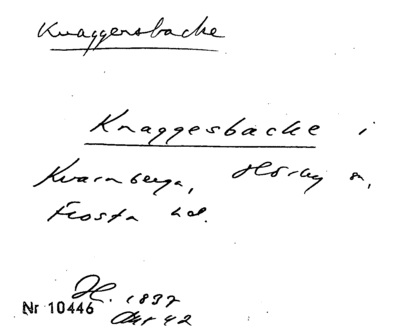 Knaggersbacke
Knaggesbacke i
Kvarnberga, Hörby sn,
Frosta hd.
H. 1837
Akt 42
Nr 10446